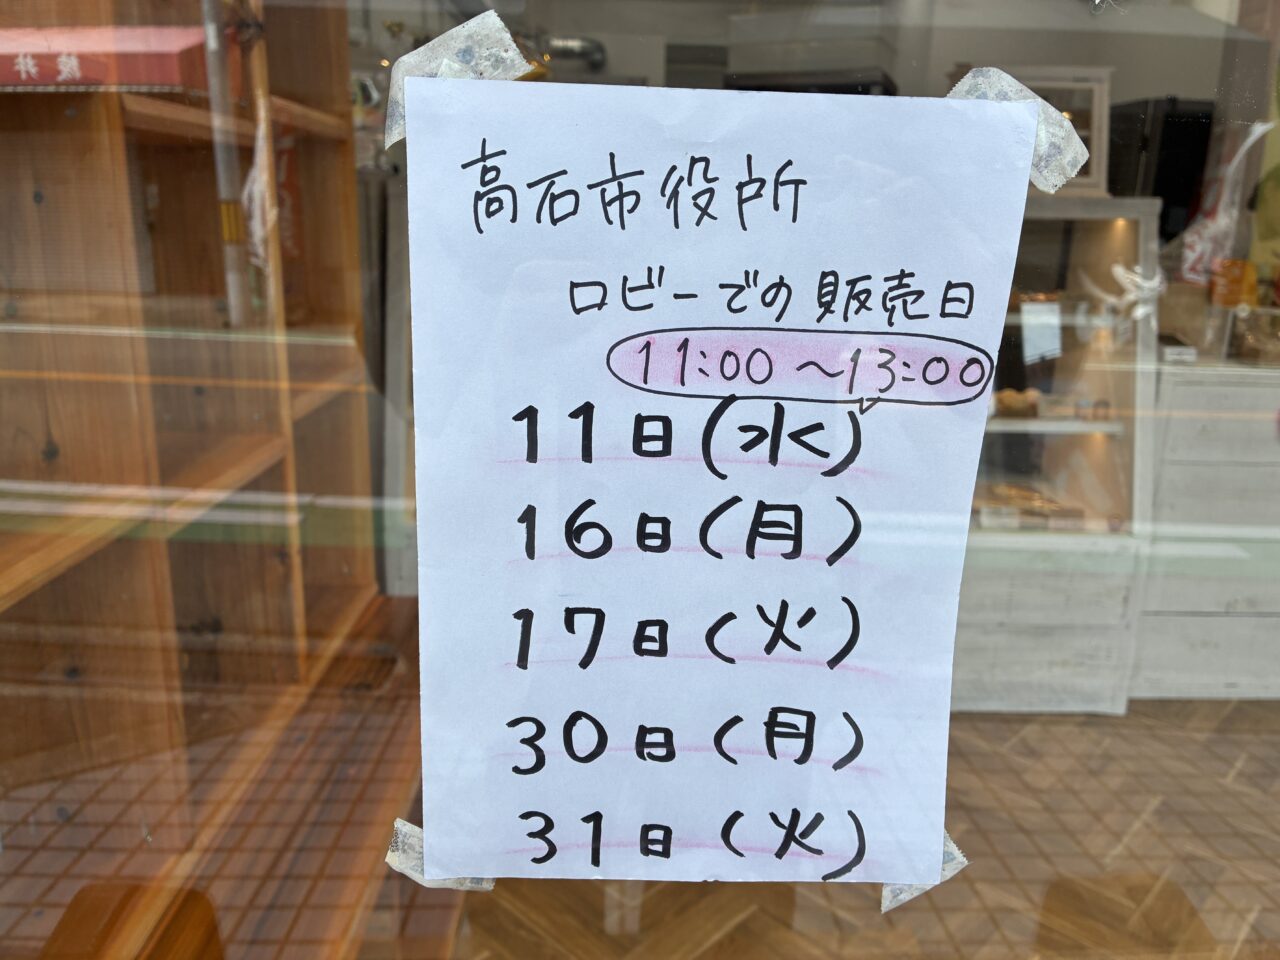 高石市役所
ロビーでの販売日
11:00〜13:00
11日(水)
16日(月)
17日(火)
30日(月)
31日(火)